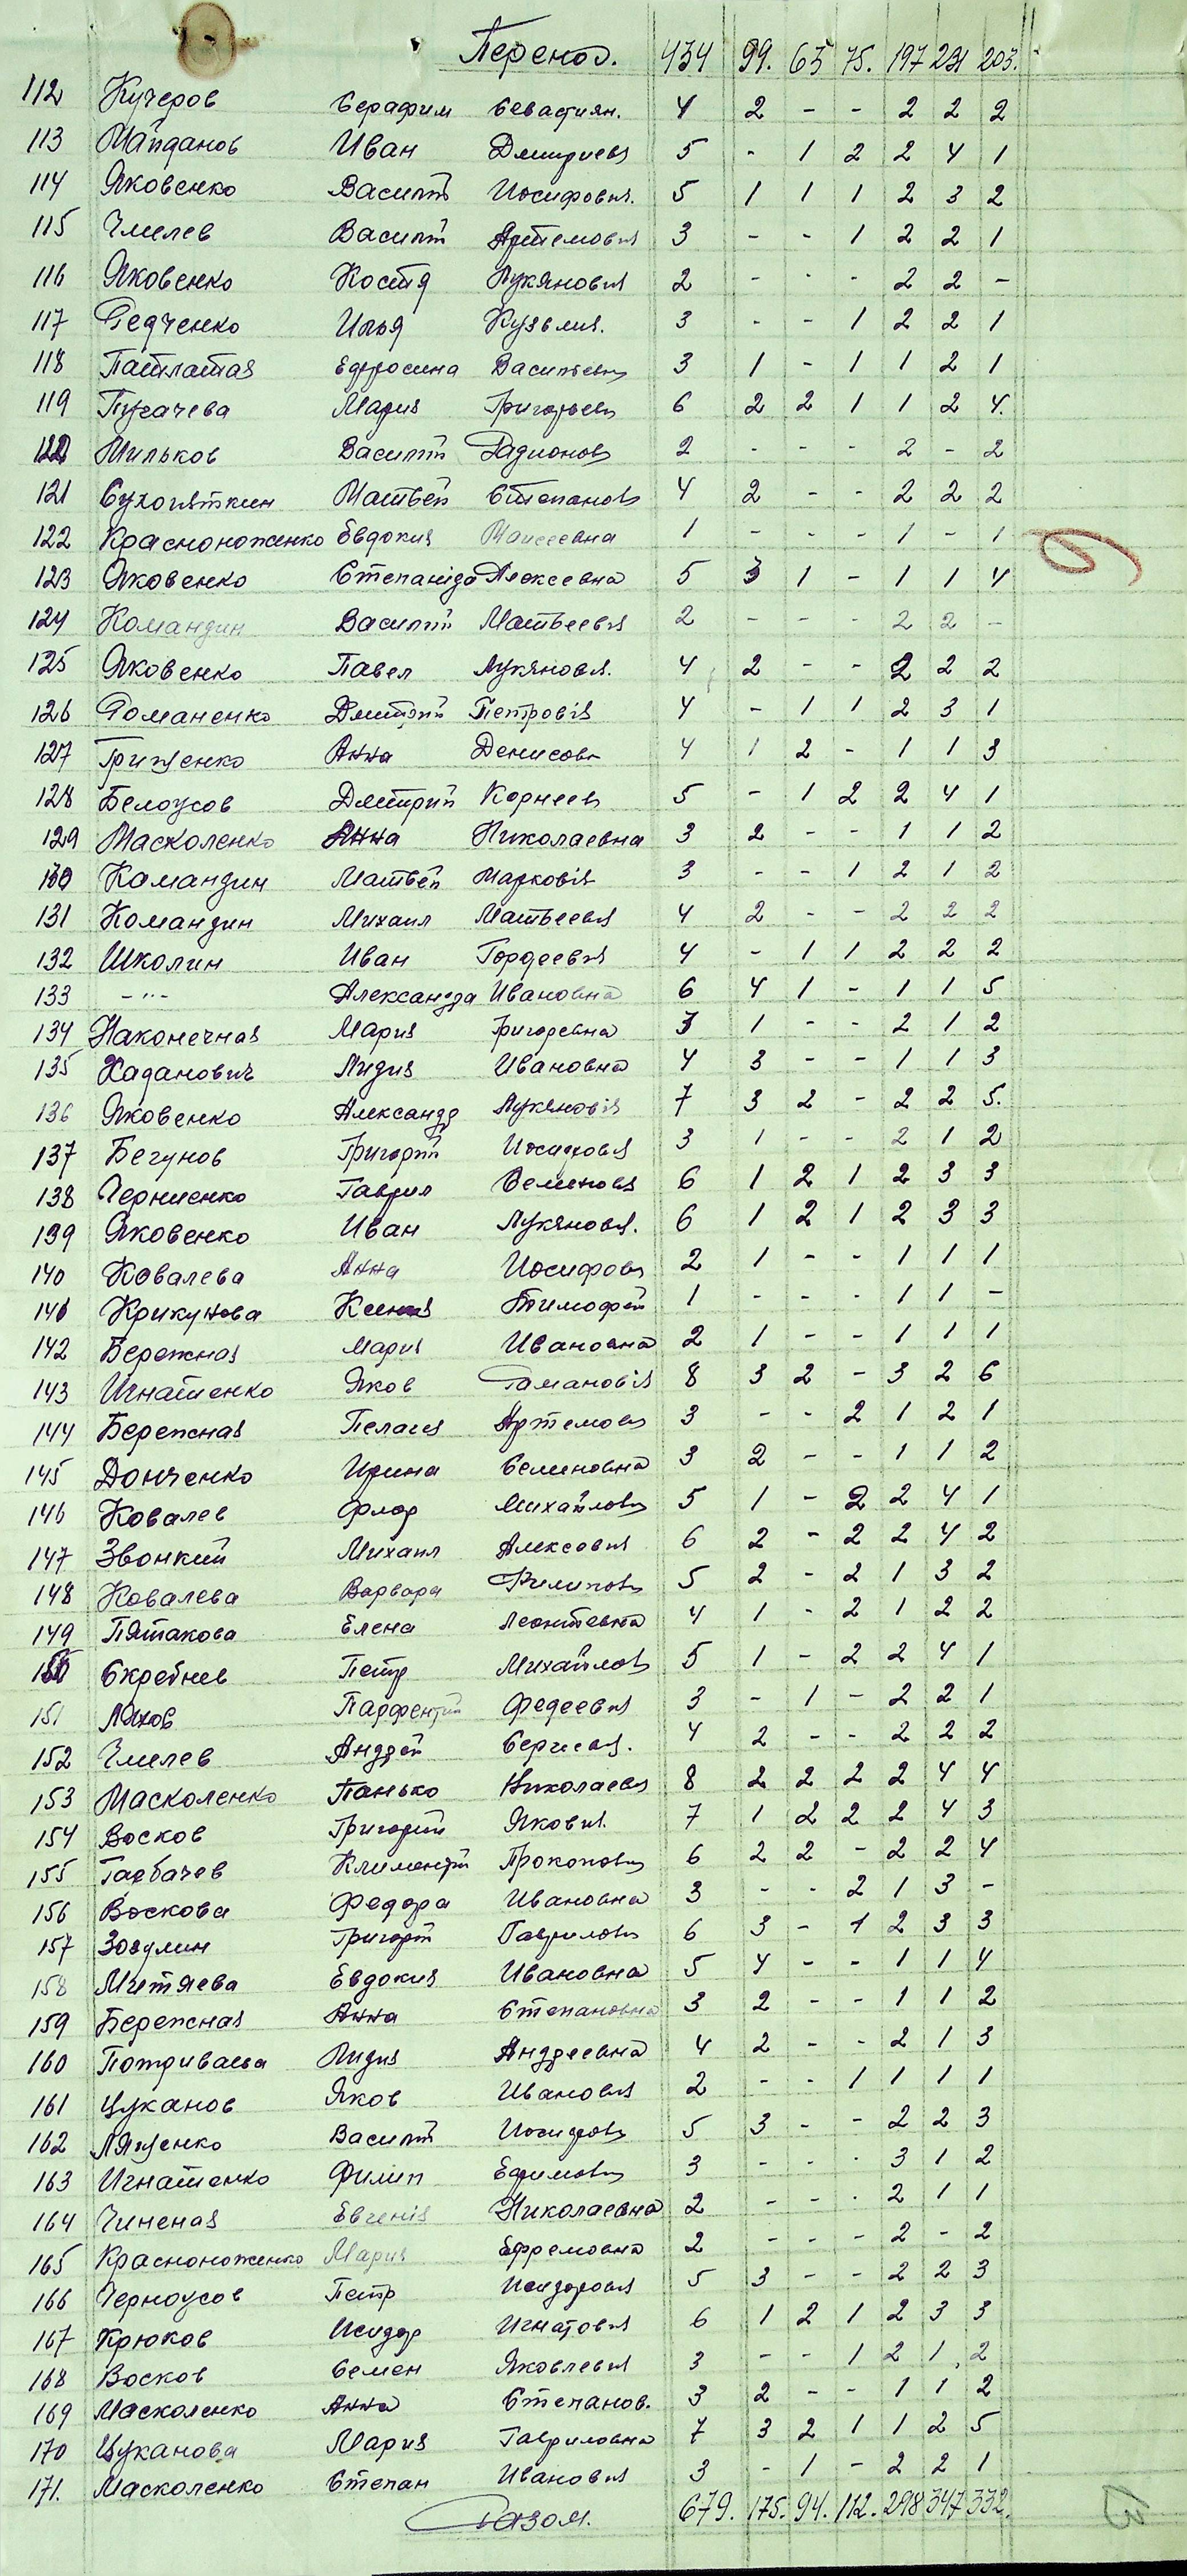 Перенос. 434 99. 63 75. 197 231 203.
112 Кучеров Серафим Севастиян. 4 2 - - 2 2 2
113 Майданов Иван Дмитриевич 5 - 1 2 2 4 1
114 Яковенко Василий Иосифович. 5 1 1 1 2 3 2
115 Чмелев Василий Артемович 3 - - 1 2 2 1
116 Яковенко Костя Лукянович 2 - - - 2 2 -
117 Редченко Илья Кузьмич. 3 - - 1 2 2 1
118 Патлатая Ефросина Васильевн 3 1 - 1 1 2 1
119 Пугачева Мария Григорьевн 6 2 2 1 1 2 4.
120 Мильков Василий Радионов 2 - - - 2 - 2
121 Сухопяткин Матвей Степанов 4 2 - - 2 2 2
122 Красноноженко Евдокия Моисеевна 1 - - - 1 - 1
123 Яковенко Степанида Алексеевна 5 3 1 - 1 1 4
124 Командин Василий Матвеевич 2 - - - 2 2 -
125 Яковенко Павел Лукянович. 4 2 - - 2 2 2
126 Романенко Дмитрий Петрович 4 - 1 1 2 3 1
127 Грищенко Анна Денисовн 4 1 2 - 1 1 3
128 Белоусов Дмитрий Корнеев 5 - 1 2 2 4 1
129 Масколенко Анна Николаевна 3 2 - - 1 1 2
130 Камандин Матвей Маркович 3 - - 1 2 1 2
131 Командин Михаил Матвеевич 4 2 - - 2 2 2
132 Школин Иван Гордеевич 4 - 1 1 2 2 2
133 -"- Александра Ивановна 6 4 1 - 1 1 5
134 Наконечная Мария Григоревна 3 1 - - 2 1 2
135 Хаданович Лидия Ивановна 4 3 - - 1 1 3
136 Яковенко Александр Лукянович 7 3 2 - 2 2 5.
137 Бегунов Григорий Иосифович 3 1 - - 2 1 2
138 Черниенко Гаврил Семенович 6 1 2 1 2 3 3
139 Яковенко Иван Лукянович. 6 1 2 1 2 3 3
140 Ковалева Анна Иосифовн 2 1 - - 1 1 1
141 Крикунова Ксения Тимофей 1 - - - 1 1 -
142 Бережная Мария Ивановна 2 1 - - 1 1 1
143 Игнатенко Яков Раманович 8 3 2 - 3 2 6
144 Бережная Пелагея Артемовн 3 - - 2 1 2 1
145 Донченко Ирина Семеновна 3 2 - - 1 1 2
146 Ковалев Флор Михайлович 5 1 - 2 2 4 1
147 Звонкий Михаил Алексевич 6 2 - 2 2 4 2
148 Ковалева Варвара Филиповн 5 2 - 2 1 3 2
149 Пятакова Елена Леонтевна 4 1 - 2 1 2 2
150 Скребнев Петр Михайлов 5 1 - 2 2 4 1
151 Ляхов Парфентий Федеевич 3 - 1 - 2 2 1
152 Чмелев Андрей Сергеев. 4 2 - - 2 2 2
153 Масколенко Панько Николаевич 8 2 2 2 2 4 4
154 Восков Григорий Якович. 7 1 2 2 2 4 3
155 Гарбачев Климентий Прокопович 6 2 2 - 2 2 4
156 Воскова Федора Ивановна 3 - - 2 1 3 -
157 Зозулин Григорий Гаврилович 6 3 - 1 2 3 3
158 Митяева Евдокия Ивановна 5 4 - - 1 1 4
159 Бережная Анна Степановна 3 2 - - 1 1 2
160 Потриваева Лидия Андреевна 4 2 - - 2 1 3
161 Цуканов Яков Иванович 2 - - 1 1 1 1
162 Лященко Василий Иосифович 5 3 - - 2 2 3
163 Игнатенко Филип Ефимович 3 - - - 3 1 2
164 Чиненая Евгения Николаевна 2 - - - 2 1 1
165 Красноноженко Мария Ефремовна 2 - - - 2 - 2
166 Черноусов Петр Исидорович 5 3 - - 2 2 3
167 Крюков Исидор Игнатович 6 1 2 1 2 3 3
168 Восков Семен Яковлевич 3 - - 1 2 1 2
169 Масколенко Анна Степанов. 3 2 - - 1 1 2
170 Цуканова Мария Гавриловна 7 3 2 1 1 2 5
171. Масколенко Степан Иванович 3 - 1 - 2 2 1
Разом. 679. 175. 94. 112. 298 347 332.